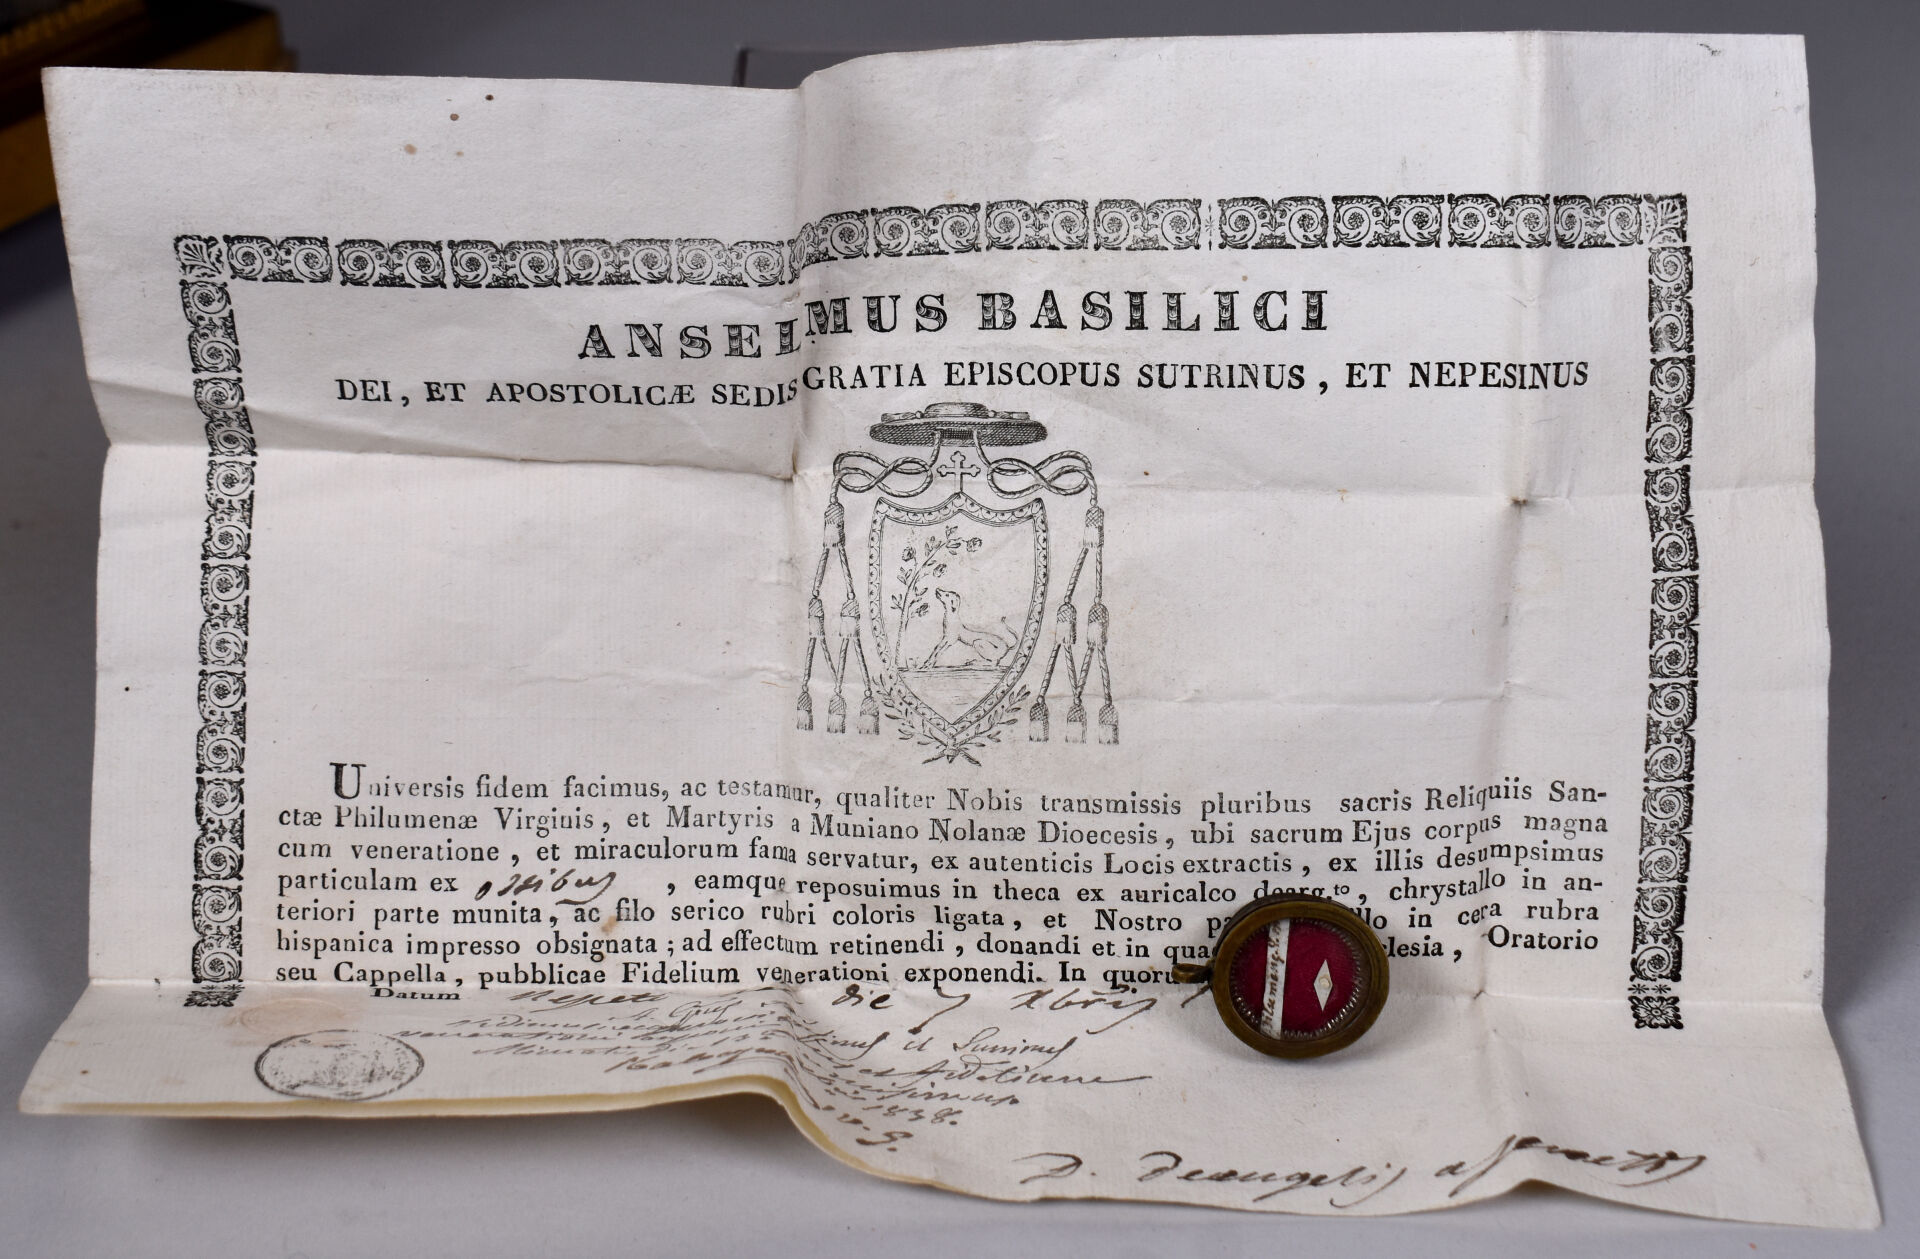 ANSELMUS BASILICI
DEI, ET APOSTOLICÆ SEDIS GRATIA EPISCOPUS SUTRINUS, ET NEPESINUS
Universis fidem facimus, ac testamur, qualiter Nobis transmissis pluribus sacris Reliquiis San-
ctæ Philumenæ Virginis, et Martyris a Muniano Nolanæ Dioecesis, ubi sacrum Ejus corpus magna
cum veneratione, et miraculorum fama servatur, ex autenticis Locis extractis, ex illis desumpsimus
particulam ex ossibus, eamque reposuimus in theca ex auricalco dearg.to, chrystallo in an-
teriori parte munita, ac filo serico rubri coloris ligata, et Nostro in cera rubra
hispanica impresso obsignata; ad effectum retinendi, donandi et in Oratorio
seu Cappella, pubblicae Fidelium venerationi exponendi. In
Datum Nepete die 7 Xbris
et
1838.
v. G.
D. Deangelis